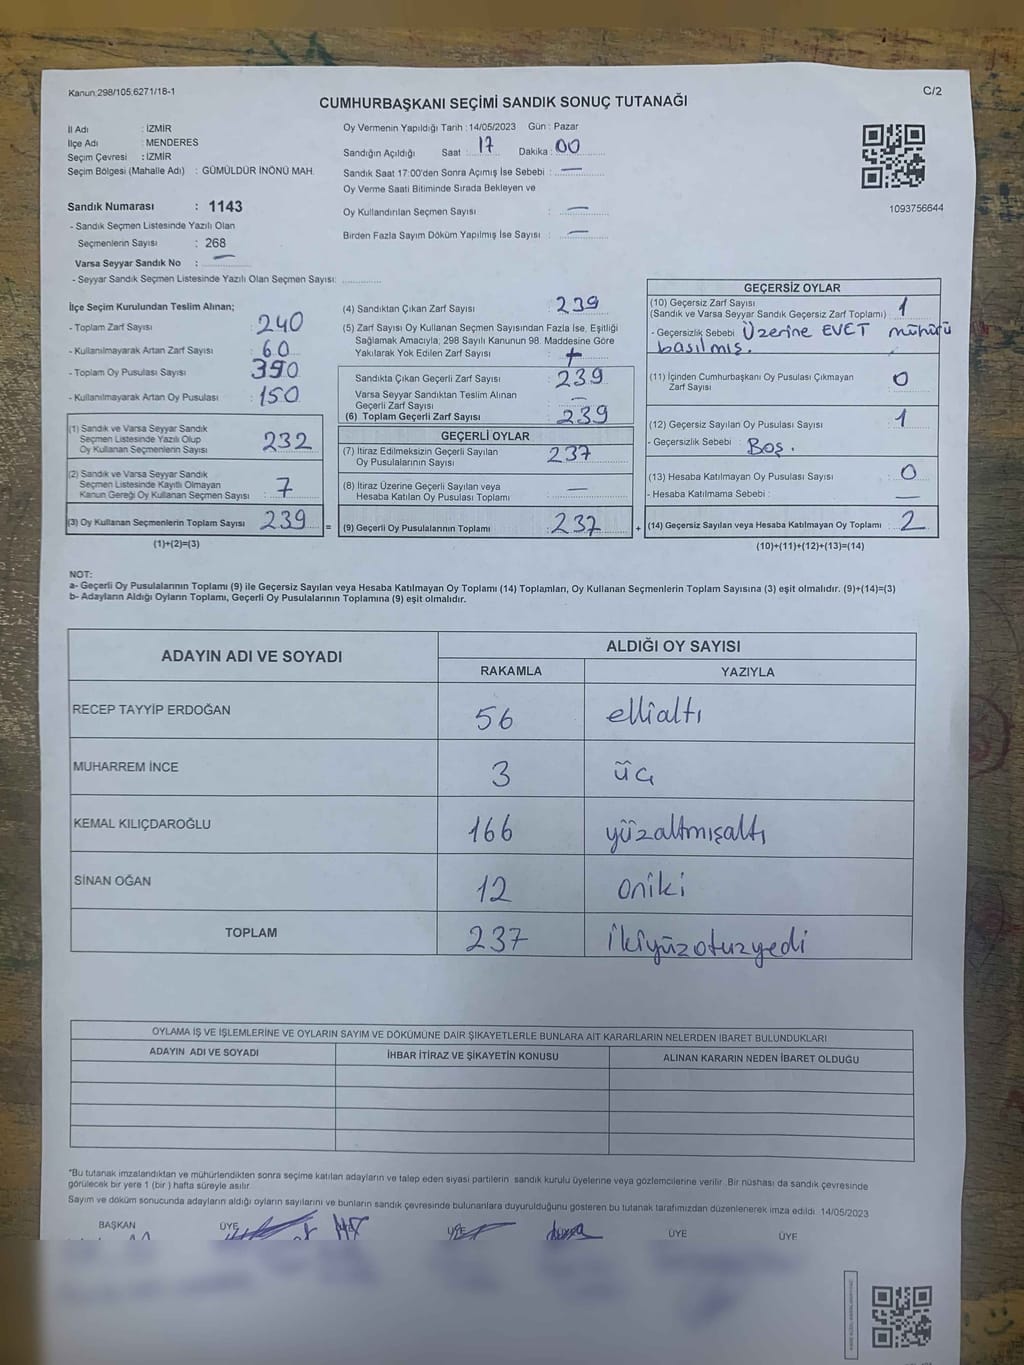 Kanun:298/105.6271/18-1
C/2
CUMHURBAŞKANI SEÇİMİ SANDIK SONUÇ TUTANAĞI
İl Adı : İZMİR
İlçe Adı : MENDERES
Seçim Çevresi : İZMİR
Seçim Bölgesi (Mahalle Adı) : GÜMÜLDÜR İNÖNÜ MAH.
Oy Vermenin Yapıldığı Tarih : 14/05/2023 Gün : Pazar
Sandığın Açıldığı Saat : 17 Dakika : 00
Sandık Saat 17:00'den Sonra Açımış İse Sebebi : —
Oy Verme Saati Bitiminde Sırada Bekleyen ve
Oy Kullandırılan Seçmen Sayısı : —
Birden Fazla Sayım Döküm Yapılmış İse Sayısı : —
1093756644
Sandık Numarası : 1143
- Sandık Seçmen Listesinde Yazılı Olan
Seçmenlerin Sayısı : 268
Varsa Seyyar Sandık No : —
- Seyyar Sandık Seçmen Listesinde Yazılı Olan Seçmen Sayısı:
İlçe Seçim Kurulundan Teslim Alınan;
- Toplam Zarf Sayısı : 240
- Kullanılmayarak Artan Zarf Sayısı : 60
- Toplam Oy Pusulası Sayısı : 390
- Kullanılmayarak Artan Oy Pusulası : 150
(1) Sandık ve Varsa Seyyar Sandık
Seçmen Listesinde Yazılı Olup
Oy Kullanan Seçmenlerin Sayısı : 232
(2) Sandık ve Varsa Seyyar Sandık
Seçmen Listesinde Kayıtlı Olmayan
Kanun Gereği Oy Kullanan Seçmen Sayısı : 7
(3) Oy Kullanan Seçmenlerin Toplam Sayısı : 239
(1)+(2)=(3)
(4) Sandıktan Çıkan Zarf Sayısı : 239
(5) Zarf Sayısı Oy Kullanan Seçmen Sayısından Fazla İse, Eşitliği
Sağlamak Amacıyla, 298 Sayılı Kanunun 98. Maddesine Göre
Yakılarak Yok Edilen Zarf Sayısı :
Sandıkta Çıkan Geçerli Zarf Sayısı : 239
Varsa Seyyar Sandıktan Teslim Alınan
Geçerli Zarf Sayısı : —
(6) Toplam Geçerli Zarf Sayısı : 239
GEÇERLİ OYLAR
(7) İtiraz Edilmeksizin Geçerli Sayılan
Oy Pusulalarının Sayısı : 237
(8) İtiraz Üzerine Geçerli Sayılan veya
Hesaba Katılan Oy Pusulası Toplamı : —
= (9) Geçerli Oy Pusulalarının Toplamı : 237
GEÇERSİZ OYLAR
(10) Geçersiz Zarf Sayısı
(Sandık ve Varsa Seyyar Sandık Geçersiz Zarf Toplamı) : 1
- Geçersizlik Sebebi : Üzerine EVET mühürü
basılmış.
(11) İçinden Cumhurbaşkanı Oy Pusulası Çıkmayan
Zarf Sayısı : 0
(12) Geçersiz Sayılan Oy Pusulası Sayısı : 1
- Geçersizlik Sebebi : Boş.
(13) Hesaba Katılmayan Oy Pusulası Sayısı : 0
- Hesaba Katılmama Sebebi : —
+ (14) Geçersiz Sayılan veya Hesaba Katılmayan Oy Toplamı : 2
(10)+(11)+(12)+(13)=(14)
NOT:
a- Geçerli Oy Pusulalarının Toplamı (9) ile Geçersiz Sayılan veya Hesaba Katılmayan Oy Toplamı (14) Toplamları, Oy Kullanan Seçmenlerin Toplam Sayısına (3) eşit olmalıdır. (9)+(14)=(3)
b- Adayların Aldığı Oyların Toplamı, Geçerli Oy Pusulalarının Toplamına (9) eşit olmalıdır.
ADAYIN ADI VE SOYADI
ALDIĞI OY SAYISI
RAKAMLA YAZIYLA
RECEP TAYYİP ERDOĞAN 56 elli altı
MUHARREM İNCE 3 üç
KEMAL KILIÇDAROĞLU 166 yüzaltmışaltı
SİNAN OĞAN 12 oniki
TOPLAM 237 ikiyüzotuzyedi
OYLAMA İŞ VE İŞLEMLERİNE VE OYLARIN SAYIM VE DÖKÜMÜNE DAİR ŞİKAYETLERLE BUNLARA AİT KARARLARIN NELERDEN İBARET BULUNDUKLARI
ADAYIN ADI VE SOYADI İHBAR İTİRAZ VE ŞİKAYETİN KONUSU ALINAN KARARIN NEDEN İBARET OLDUĞU
"Bu tutanak imzalandıktan ve mühürlendikten sonra seçime katılan adayların ve talep eden siyasi partilerin sandık kurulu üyelerine veya gözlemcilerine verilir. Bir nüshası da sandık çevresinde
görülecek bir yere 1 (bir) hafta süreyle asılır.
Sayım ve döküm sonucunda adayların aldığı oyların sayılarını ve bunların sandık çevresinde bulunanlara duyurulduğunu gösteren bu tutanak tarafımızdan düzenlenerek imza edildi. 14/05/2023
BAŞKAN ÜYE ÜYE ÜYE ÜYE